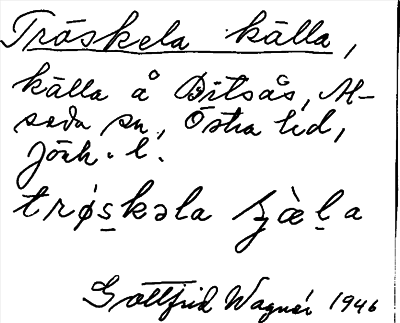 Tröskela källa,
källa å Bitsås, Al-
seda sn, Östra hd,
Jönk. l.
trǿs̠kəla ʒæ̀l̠a
Gottfrid Wagnér 1946